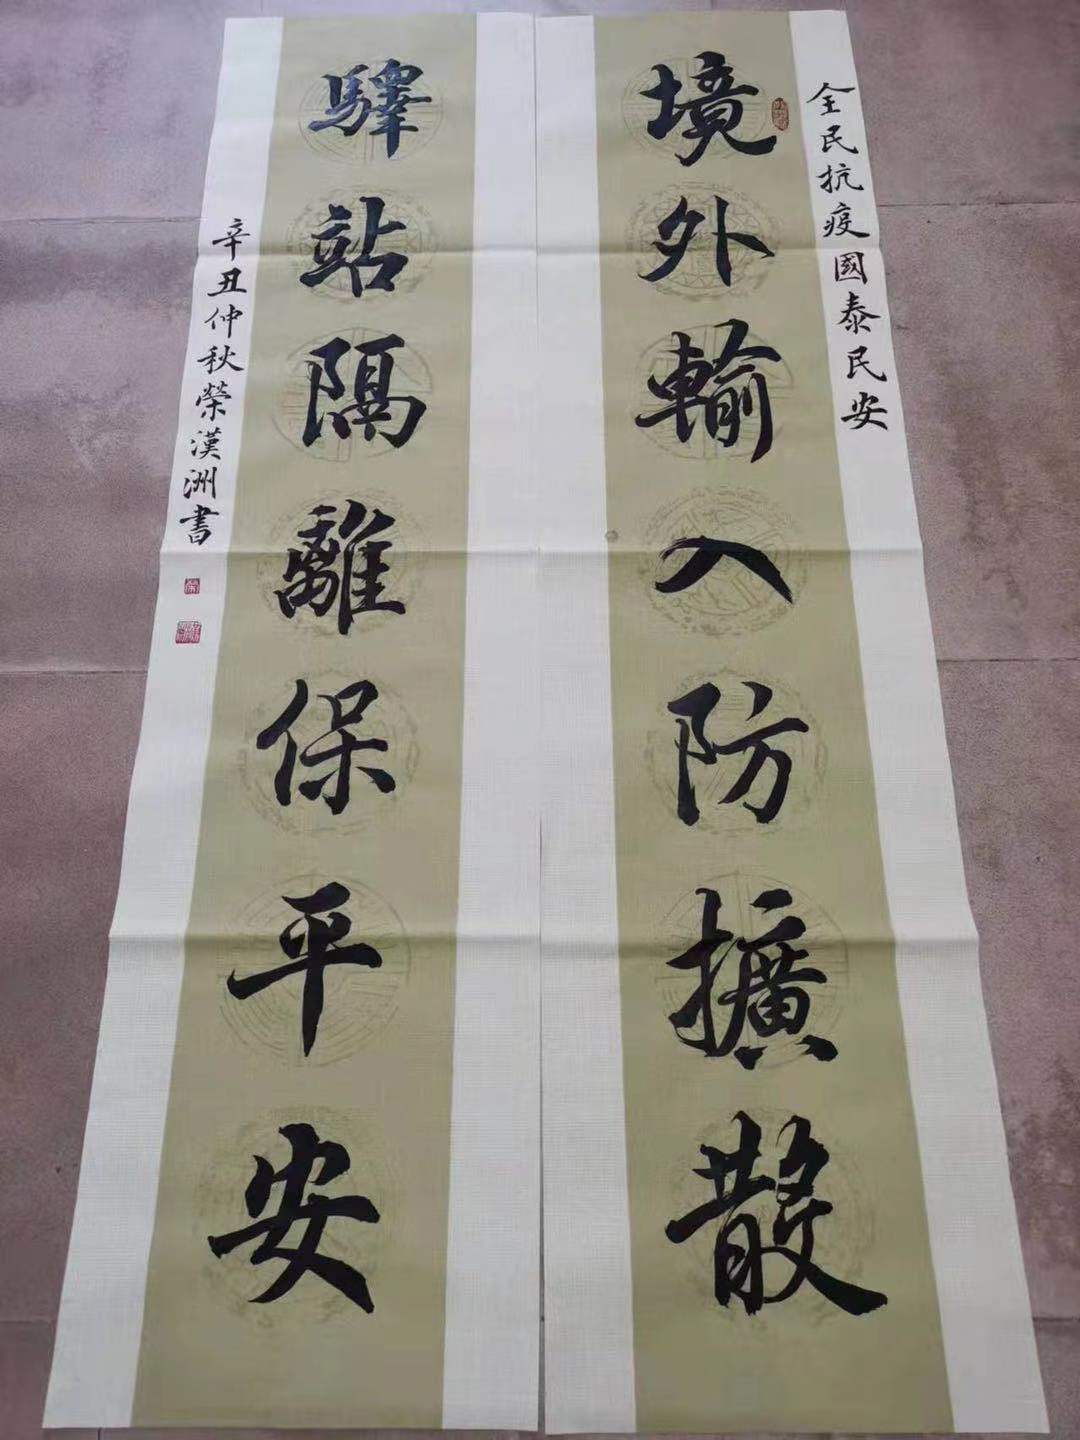 全民抗疫國泰民安
境外輸入防擴散
驛站隔離保平安
辛丑仲秋榮漢洲書